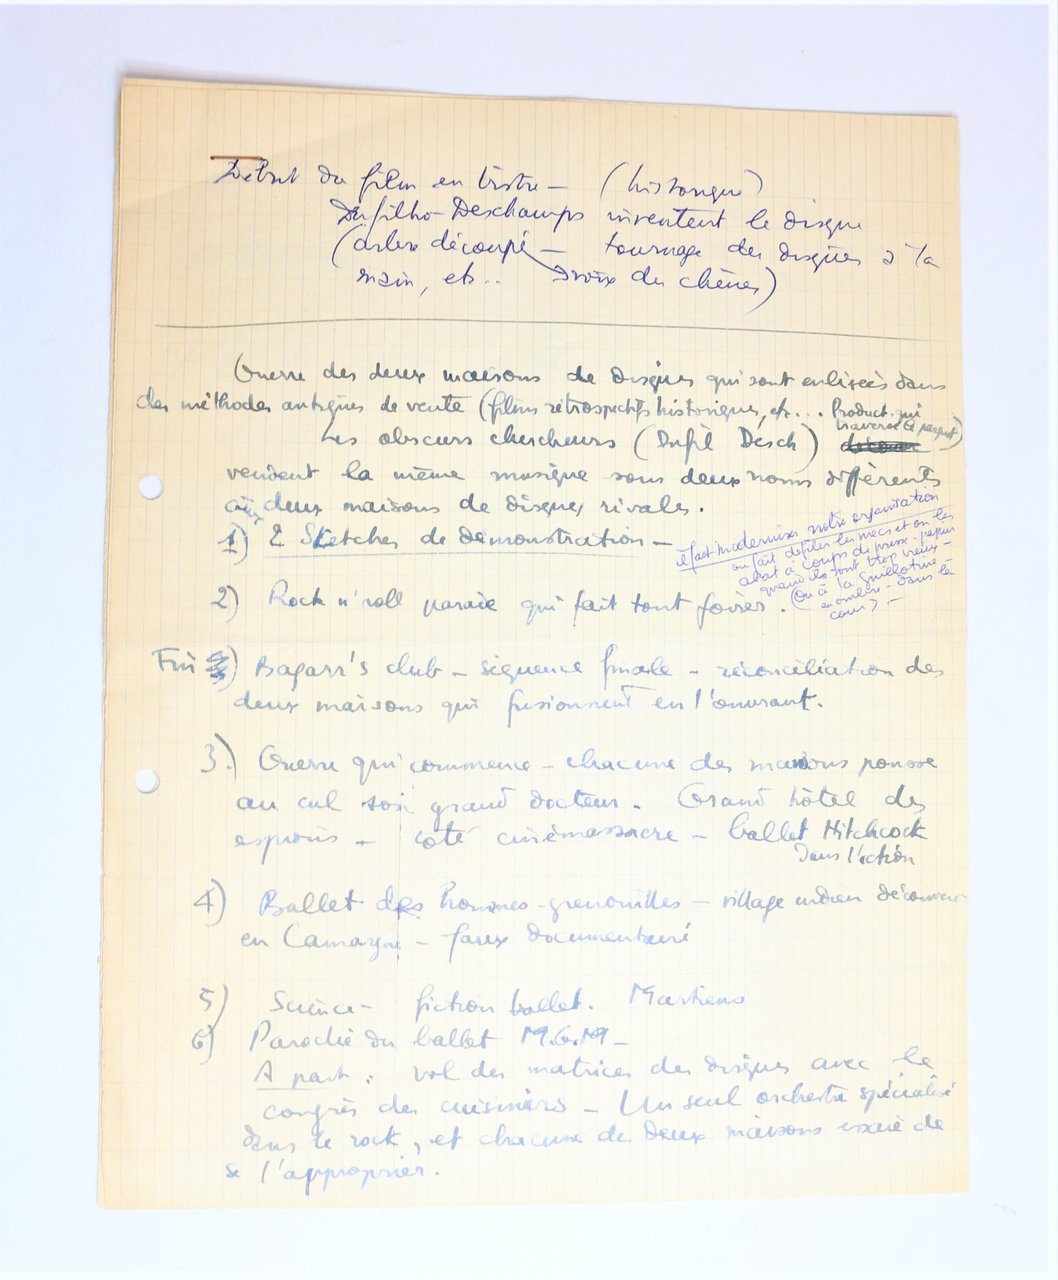 Début du film en bistre — (historique)
Dufilho-Deschamps inventent le disque
(arbre découpé — tournage des disques à la
main, etc.. voix des chênes)
Guerre des deux maisons de disques qui sont enlisées dans
des méthodes antiques de vente (films rétrospectifs historiques, etc... Product. qui
traverse le parquet)
Les obscurs chercheurs (Dufil Desch)
vendent la même musique sous deux noms différents
aux deux maisons de disques rivales.
1) 2 Sketches de démonstration —
il faut moderniser notre organisation
on fait défiler les mecs et on les
abat à coups de presse-papier
quand ils sont trop vieux —
(ou à la guillotine —
en ombre - dans la
cour) —
2) Rock n' roll paraît qui fait tout foirer.
Fin ) Bagarr's club — séquence finale — réconciliation des
deux maisons qui fusionnent en l'ouvrant.
3.) Guerre qui commence — chacune des maisons pousse
au cul son grand docteur. Grand hôtel des
espions — côté cinémassacre — ballet Hitchcock
dans l'action
4) Ballet des hommes-grenouilles — village indien découvert
en Camargue — faux documentaire
5) Science-fiction ballet. Martiens
6) Parodie du ballet M.G.M —
A part : vol des matrices des disques avec le
congrès des cuisiniers — Un seul orchestre spécialisé
dans le rock, et chacune de deux maisons essaie de
se l'approprier.